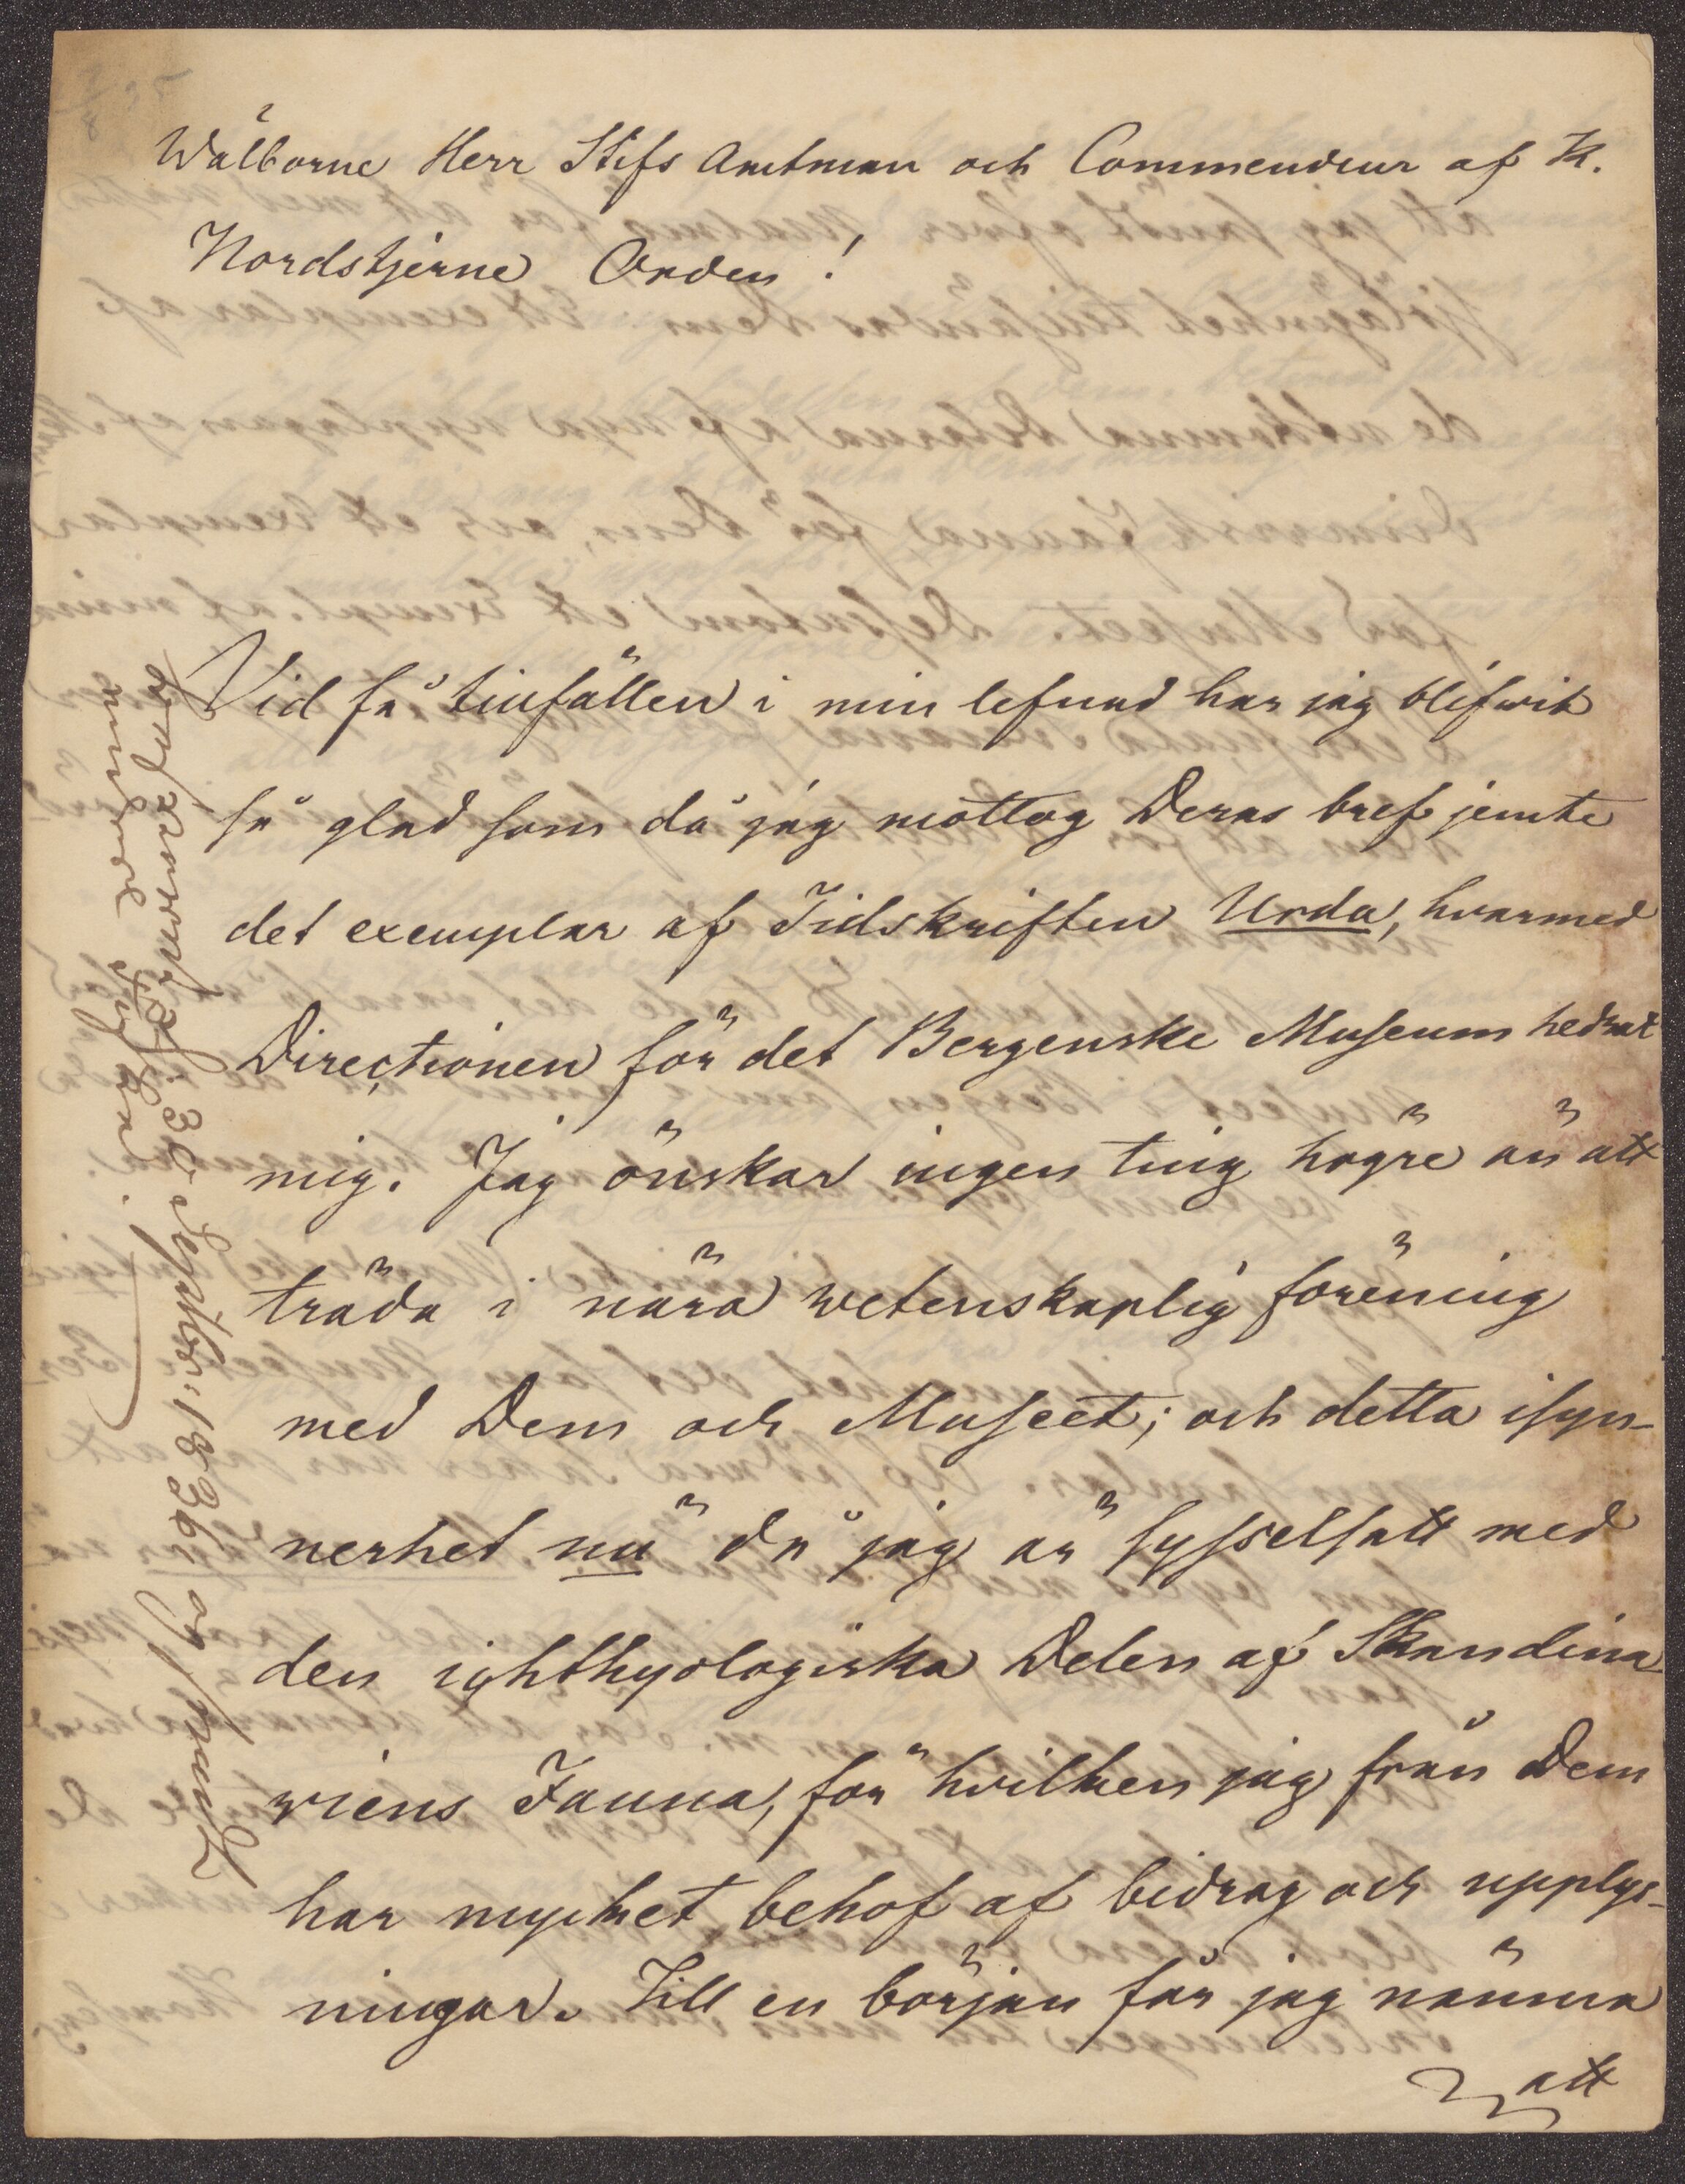 Wälborne Herr Stifs Amtman och Commendeur af K.
Nordstjerne Orden!
Vid få tillfällen i min lefnad har jag blifwit
så glad som då jag mottog Deras bref jemte
det exemplar af Tidskriften Urda, hvarmed
Directionen för det Bergenske Museum hedrat
mig. Jag önskar ingen ting högre än att
träda i nära wetenskaplig förening
med Dem och Museet; och detta isyn-
nerhet nu då jag är sysselsatt med
den ichthyologiska Delen af Skandina-
viens Fauna, för hvilken jag från Dem
har mycket behof af bidrag och upplys-
ningar. Till en början får jag nämna
att
30 Septbr: 1836 og